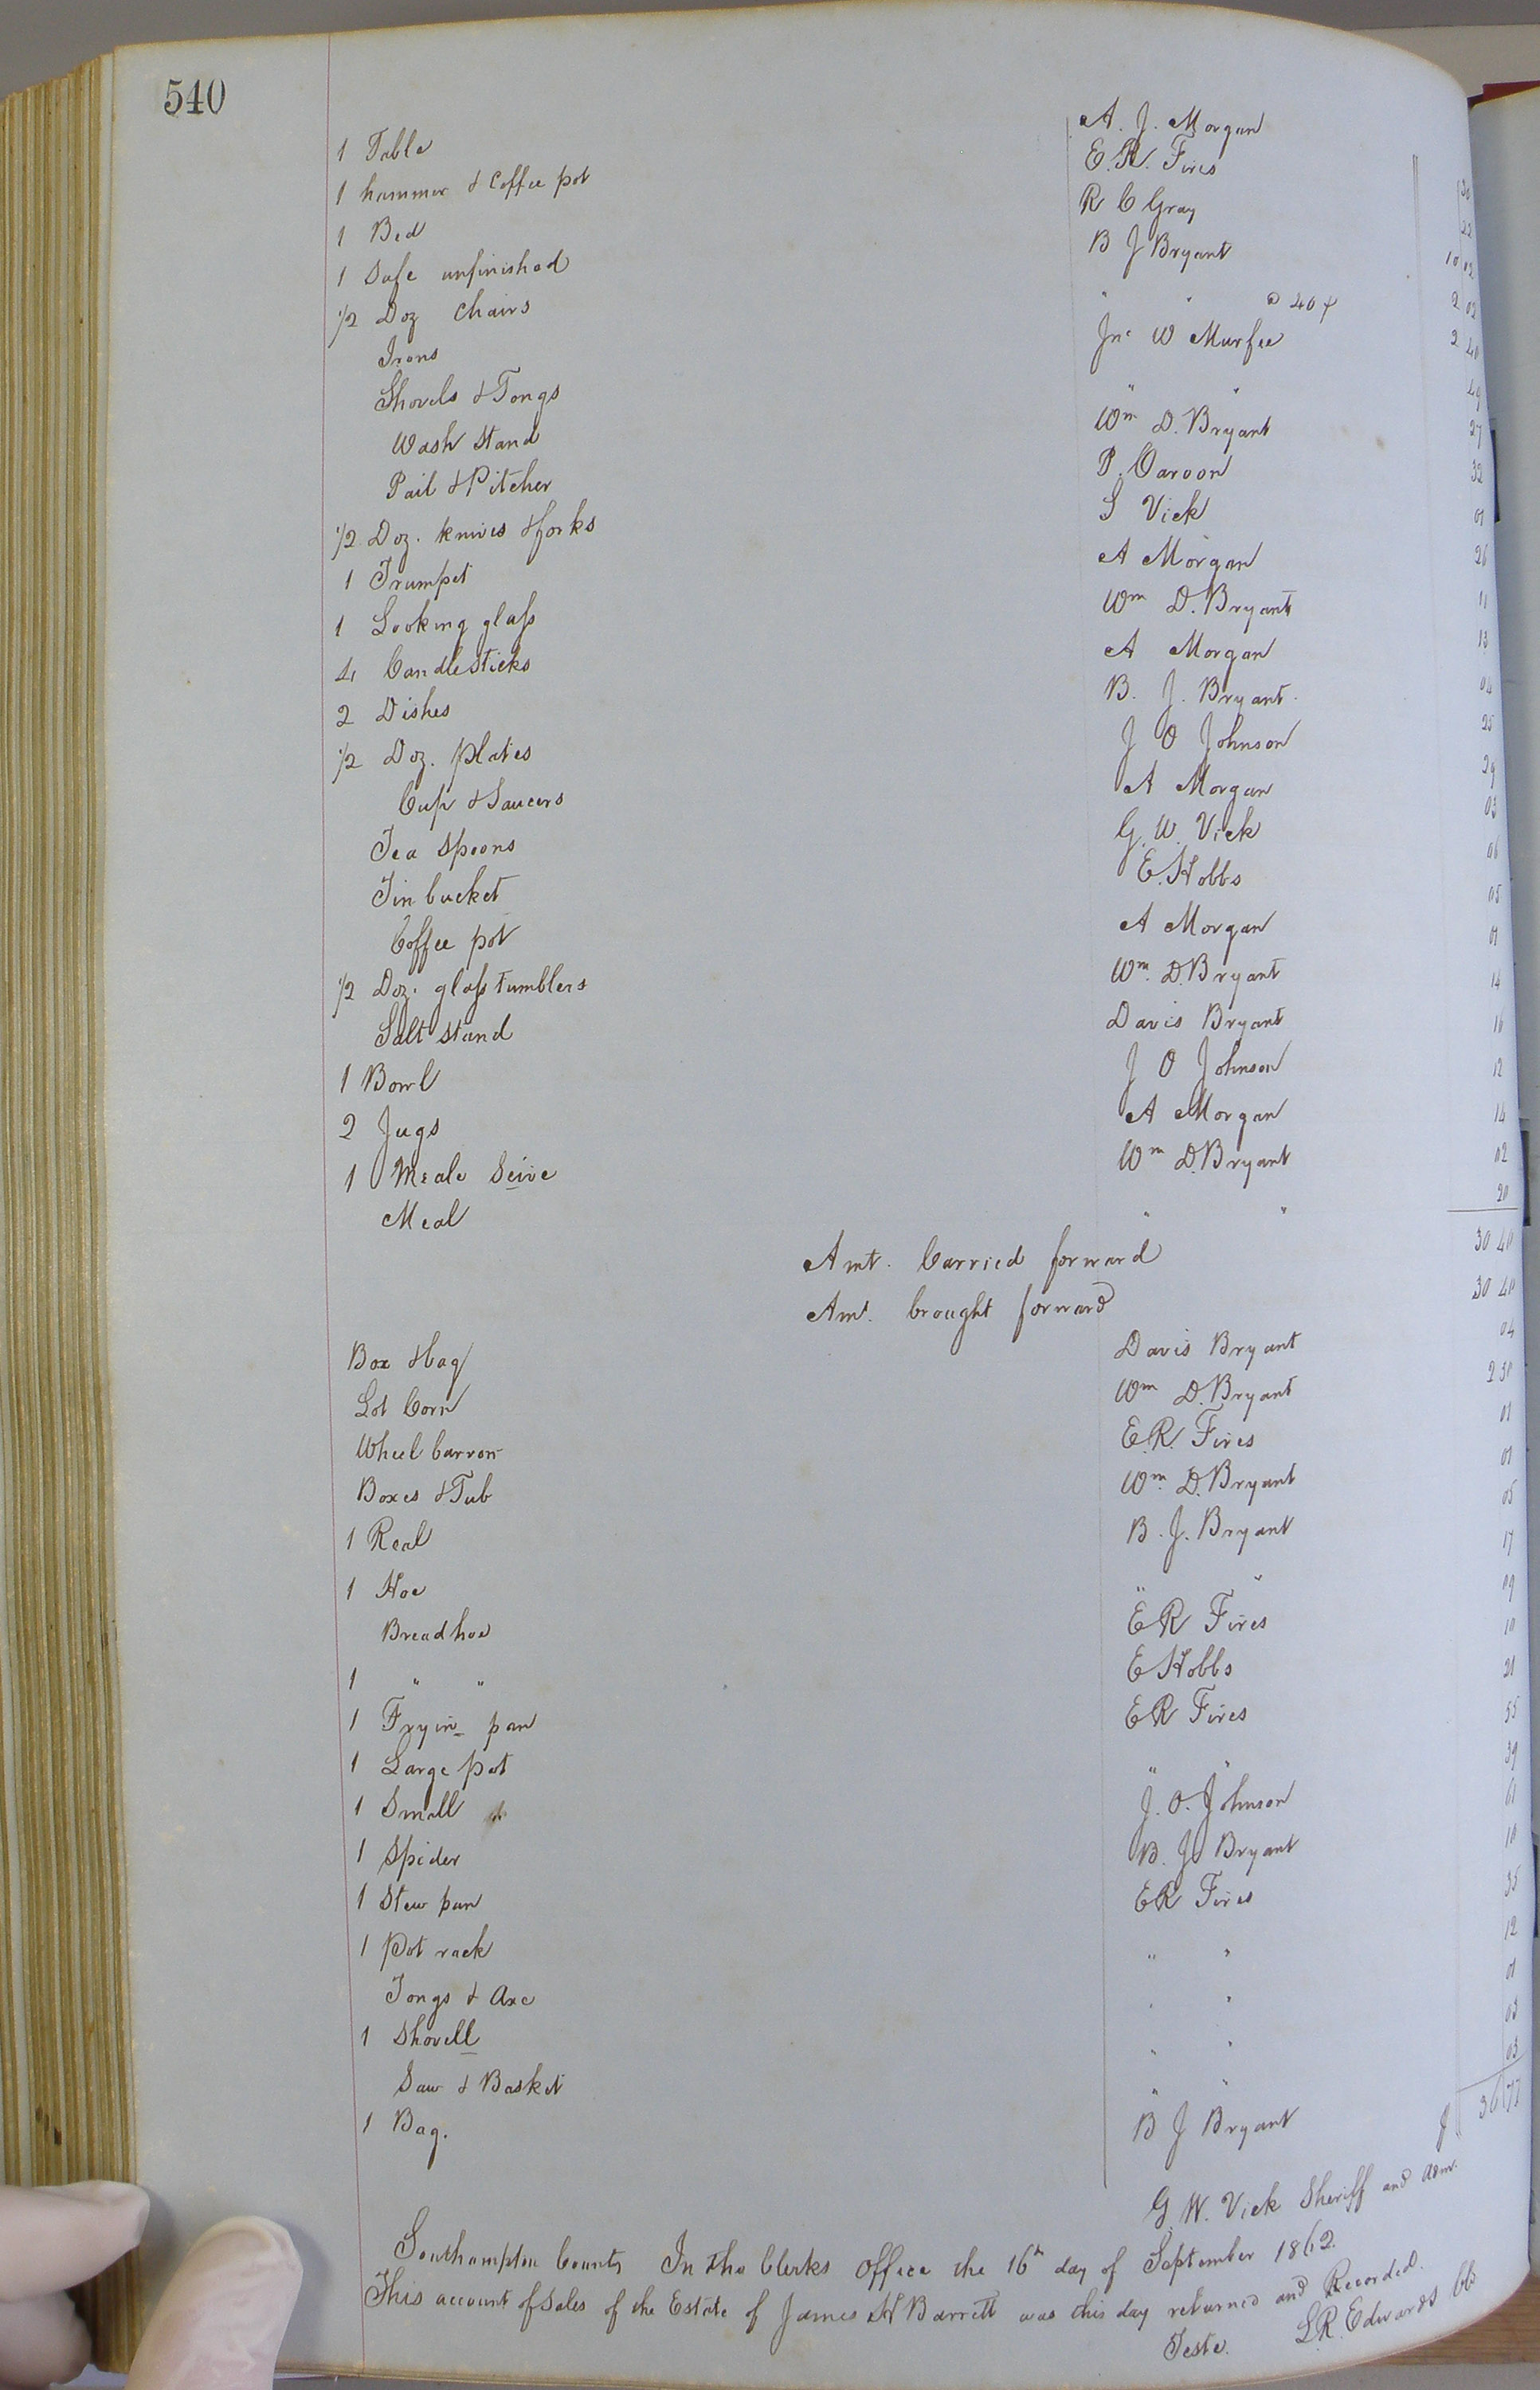 540
1 Table A. J. Morgan 30
1 hammer & Coffee pot E. R. Fires 22
1 Bed R C Gray 10 02
1 Safe unfinished B J Bryant 2 02
1/2 Doz Chairs " " @ 40 ¢ 2 40
Irons Jno W Murfee 49
Shovels & Tongs " " 27
Wash Stand Wm D. Bryant 32
Pail & Pitcher P. Caroon 01
1/2 Doz. knives & forks S Vick 26
1 Trumpet A Morgan 11
1 Looking glass Wm D. Bryant 13
4 Candlesticks A Morgan 04
2 Dishes B. J. Bryant. 25
1/2 Doz. plates J O Johnson 29
Cup & Saucers A Morgan 03
Tea Spoons G. W. Vick 06
Tin bucket E. Hobbs 05
Coffee pot A Morgan 01
1/2 Doz. glass tumblers Wm. D. Bryant 14
Salt stand Davis Bryant 16
1 Bowl J O Johnson 12
2 Jugs A Morgan 14
1 Meale Seive Wm D. Bryant 02
Meal " " 20
Amt. Carried forward 30 40
Amt. brought forward 30 40
Box & bag Davis Bryant 04
Lot Corn Wm D. Bryant 2 30
Wheel barrow E. R. Fires 01
Boxes & Tub Wm. D. Bryant 01
1 Real B. J. Bryant 05
1 Hoe " " 17
Bread hoe E R Fires 09
1 " " E Hobbs 10
1 Fryin pan E R Fires 21
1 Large pot " " 55
1 Small do J. O. Johnson 39
1 Spider B. J. Bryant 61
1 Stew pan E R Fires 10
1 Pot rack " " 35
Tongs & Axe " " 12
1 Shovell " " 01
Saw & Basket " " 03
1 Bag. B J Bryant 03
$ 36 77
G. W. Vick Sheriff and Adm.
Southampton County In the Clerks Office the 16th day of September 1862.
This account of Sales of the Estate of James H Barrett was this day returned and Recorded.
Teste. L. R. Edwards Clk